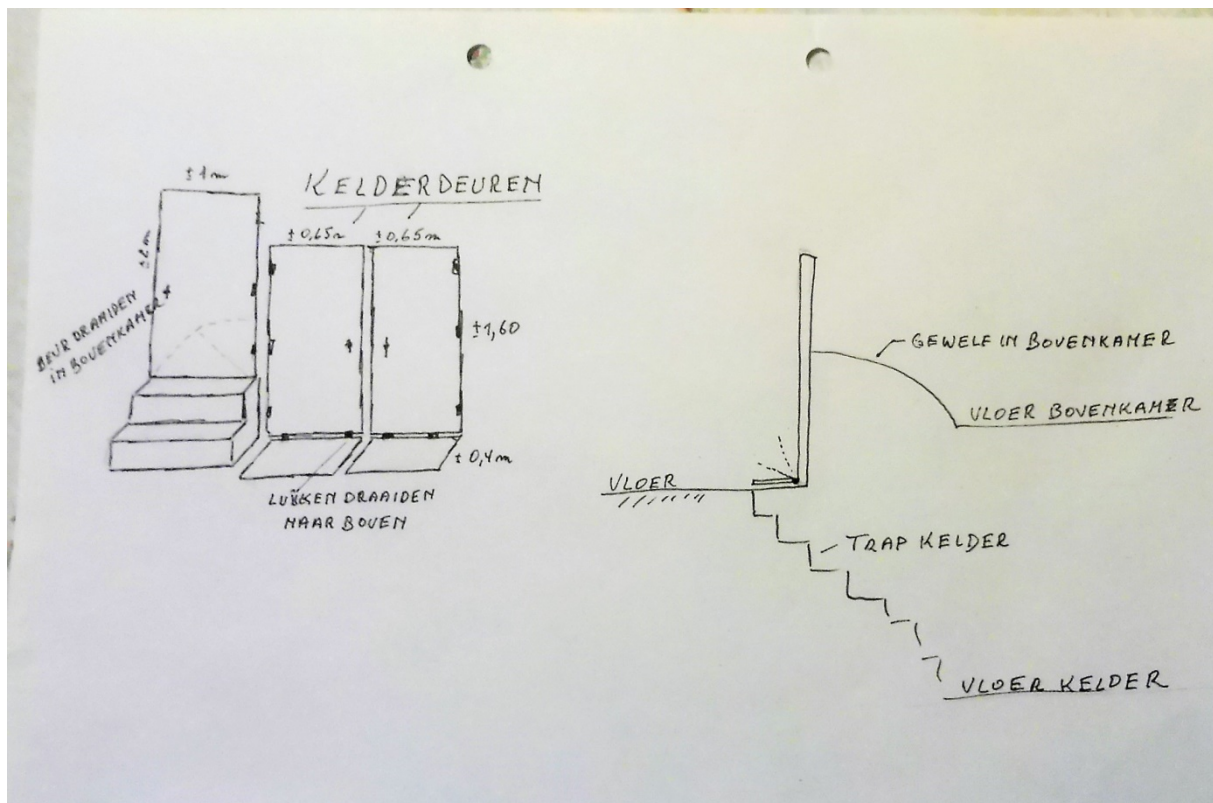 ± 1m
KELDERDEUREN
± 0,65m ± 0,65m
± 2m
DEUR DRAAIDEN
IN BOVENKAMER
± 1,60
± 0,4m
LUIKEN DRAAIDEN
NAAR BOVEN
GEWELF IN BOVENKAMER
VLOER BOVENKAMER
VLOER
TRAP KELDER
VLOER KELDER